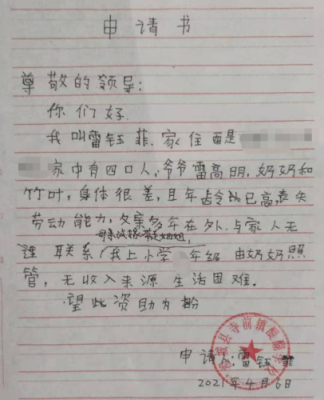 申请书
尊敬的领导:
你们好.
我叫雷钰菲.家住西是
家中有四口人,爷爷雷高明,奶奶和
竹叶,身体很差,且年龄已高,丧失
劳动能力,父亲多年在外,与家人无
联系,我上小学 年级 由奶奶照
管,无收入来源 生活困难.
望此资助为盼
申请人:雷钰
2021年4月6日